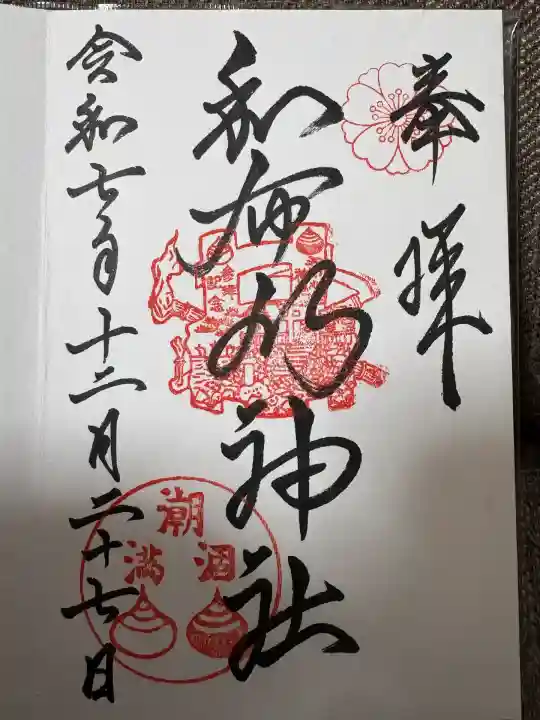 奉拝
和布刈神社
令和七年十二月二十七日
参拝記念
潮
満
涸